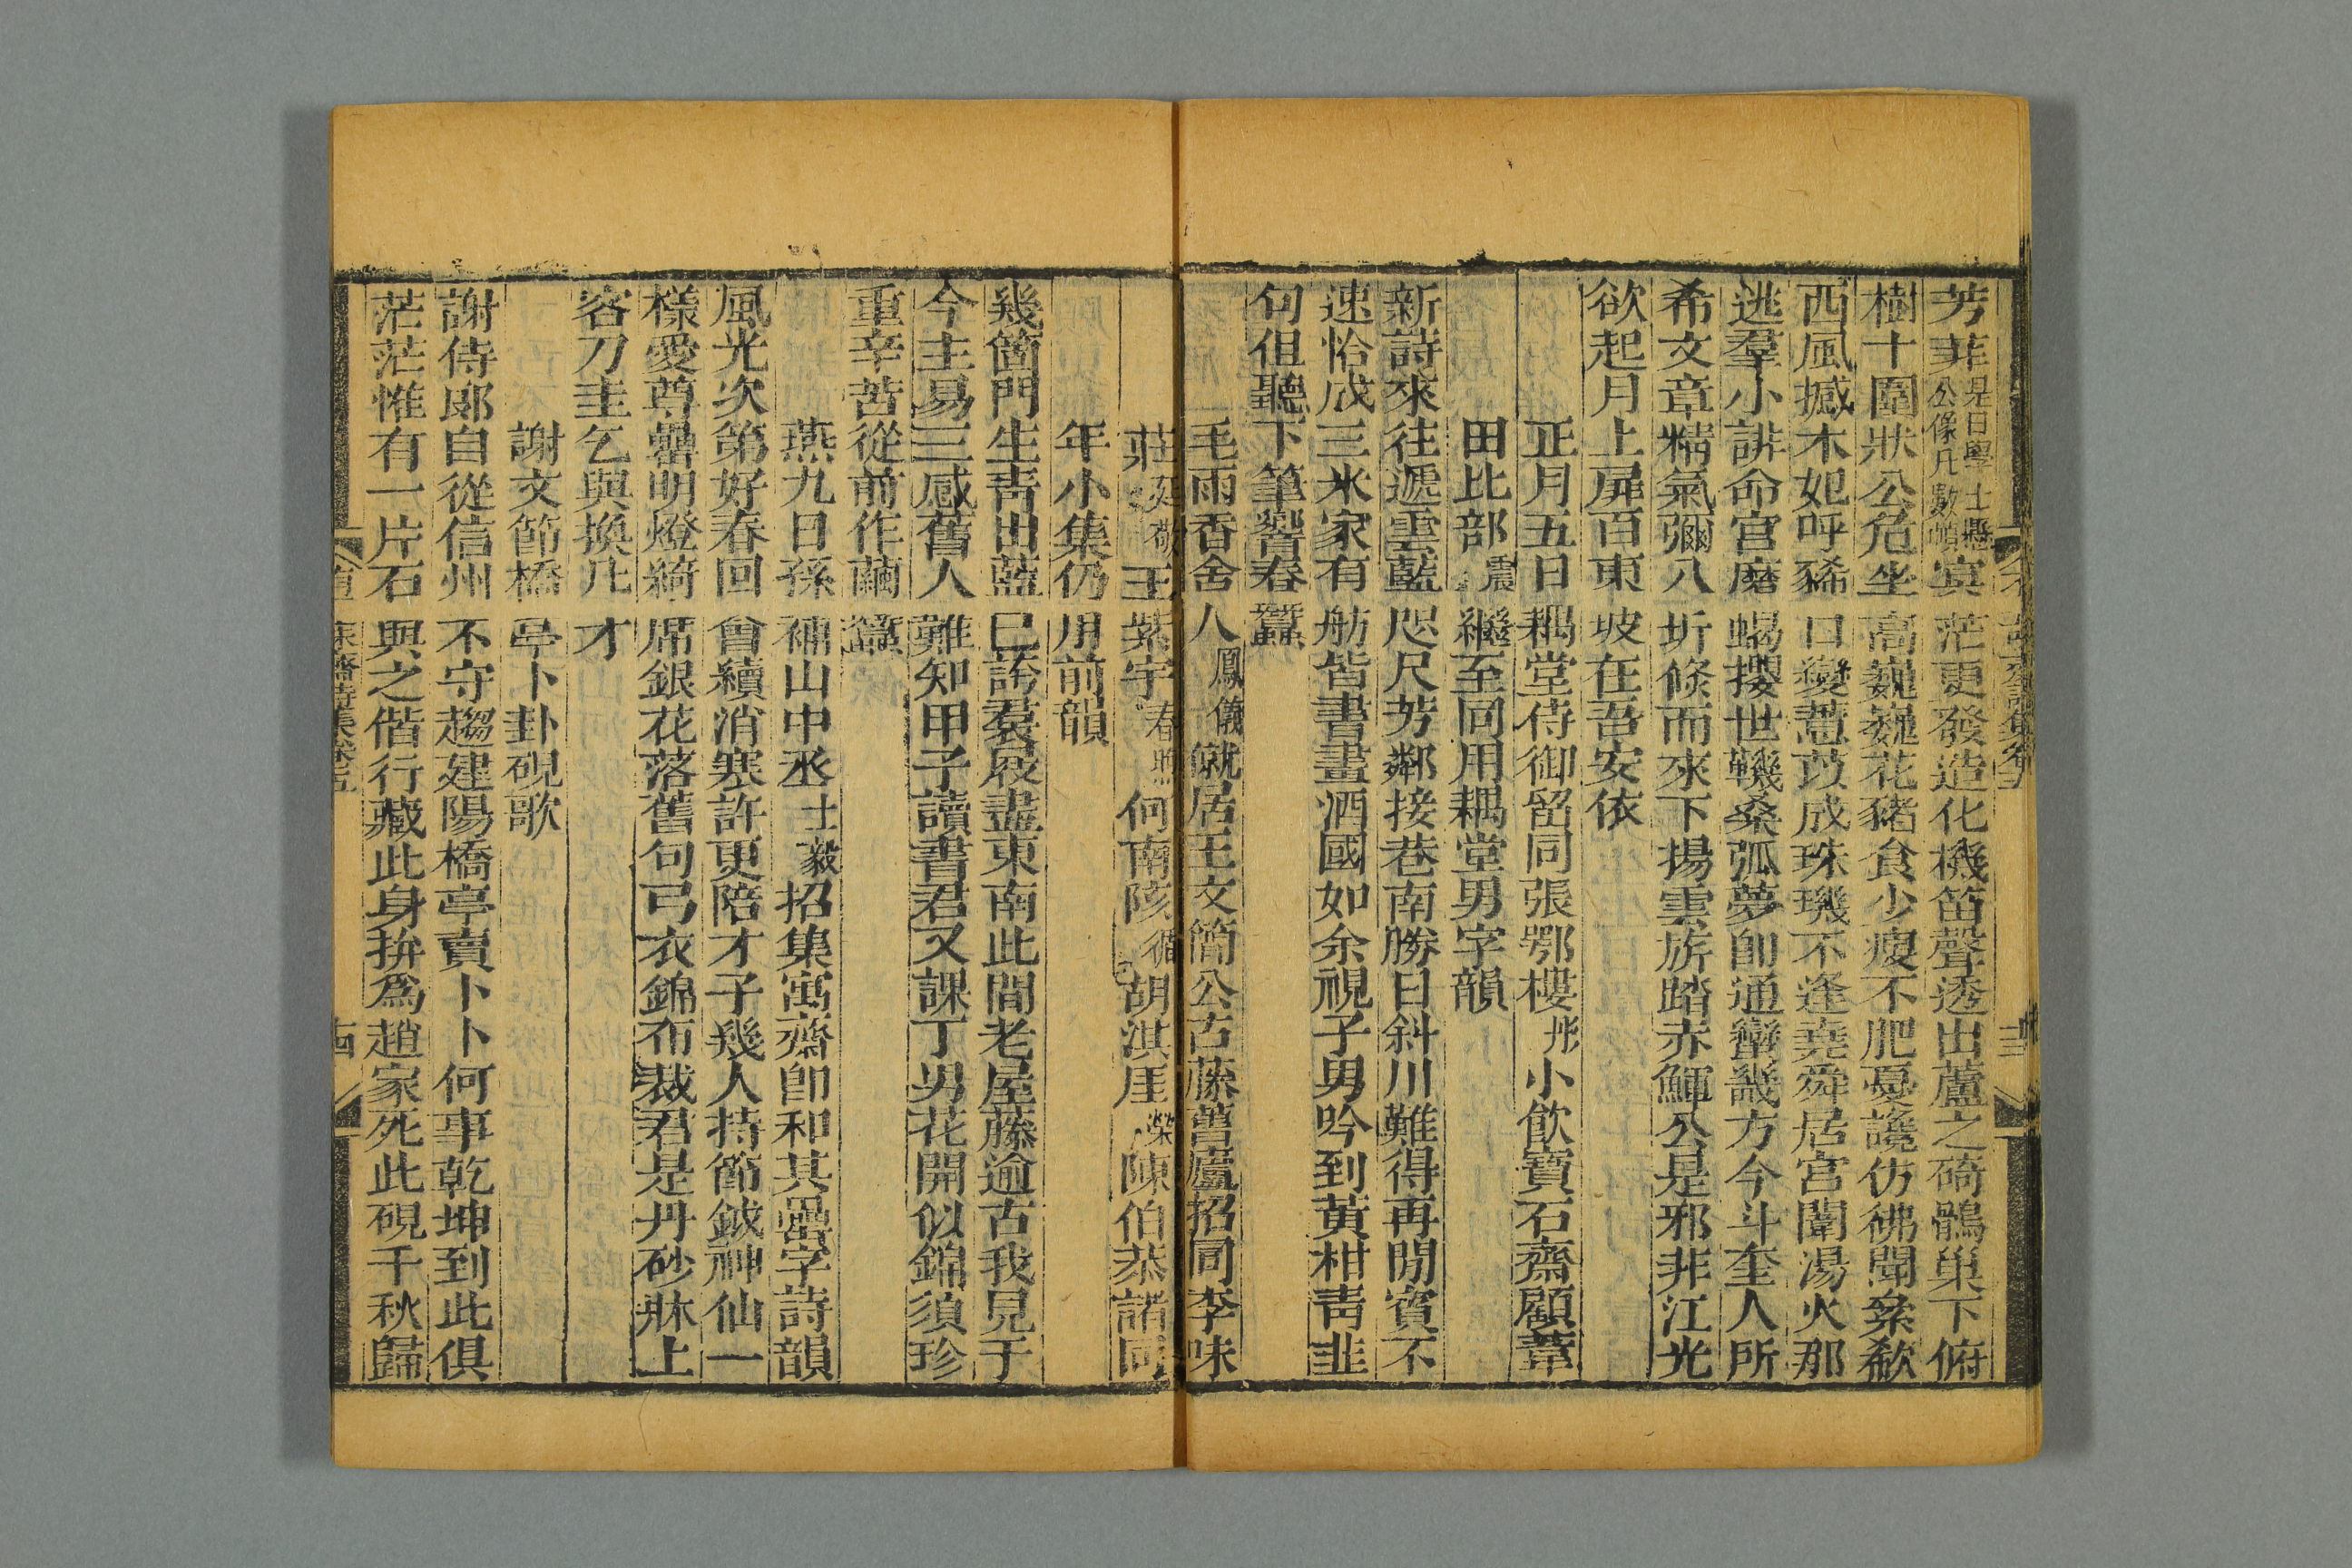 芳菲是日學士懸公像凡數幀寘茫更發造化機笛聲透出蘆之碕鶻巢下俯
樹十圍狀公危坐高巍巍花豬食少瘦不肥憂讒仿彿聞㱇欷
西風撼木如呼豨口變薏苡成珠璣不逢堯舜居宮闈湯火那
逃羣小誹命宮磨蝎攖世鞿桑弧夢卽通蠻畿方今斗奎人所
希文章精氣彌八圻倐而來下揚雲旂踏赤鯶公是邪非江光
欲起月上扉百東坡在吾安依
正月五日耦堂侍御留同張鄂樓彤小飮寶石齋顧葦
田比部震繼至同用耦堂男字韻
新詩來往遞雲藍咫尺芳鄰接巷南勝日斜川難得再閒賓不
速恰成三米家有舫皆書畫酒國如余視子男吟到黃柑靑韭
句但聽下筆響春蠶
毛雨香舍人鳳儀僦居王文簡公古藤書廬招同李味
莊廷敬王紫宇春煦何南陔循胡淇厓濚陳伯恭諸同
年小集仍用前韻
幾箇門生靑出藍巳誇裙屐盡東南此間老屋藤逾古我見于
今主易三感舊人難知甲子讀書君又課丁男花開似錦須珍
重辛苦從前作繭蠶
燕九日孫補山中丞士毅招集寓齋卽和其罍字詩韻
風光次第好春回曾續消寒許更陪才子幾人持節鉞神仙一
樣愛尊罍明燈綺席銀花落舊句弓衣錦布裁君是丹砂牀上
客刀圭乞與換凡才
謝文節橋亭卜卦硯歌
謝侍郎自從信州不守趨建陽橋亭賣卜卜何事乾坤到此俱
茫茫惟有一片石與之偕行藏此身拚爲趙家死此硯千秋歸